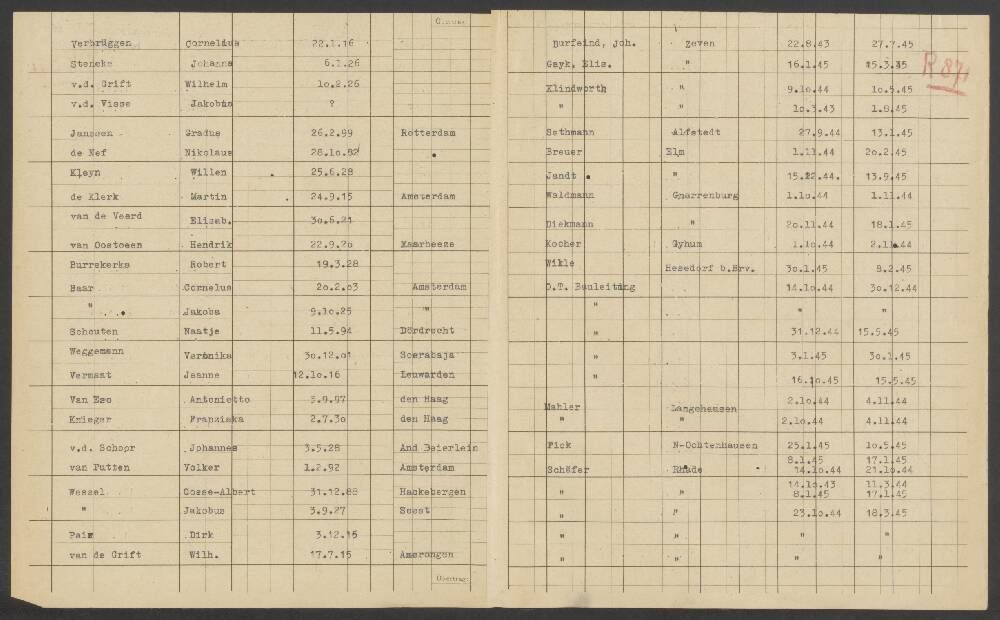 Verbrüggen Cornelius 22.1.16 Burfeind, Joh. Zeven 22.8.43 27.7.45
Stencke Johanna 6.1.26 Gayk, Elis. " 16.1.45 15.3.45 R 871
v.d. Grift Wilhelm 1o.2.26 Klindworth " 9.1o.44 1o.5.45
v.d. Visse Jakobus ? " " 1o.3.43 1.8.45
Janssen Gradus 26.2.99 Rotterdam Sethmann Alfstedt 27.9.44 13.1.45
de Nef Nikolaus 28.1o.82 Breuer Elm 1.11.44 2o.2.45
Kleyn Willen 25.6.28 Jandt " 44. 13.9.45
de Klerk Martin 24.9.15 Amsterdam Waldmann Gnarrenburg 1.1o.44 1.11.44
van de Veerd Elisab. 3o.6.21 Diekmann " 2o.11.44 18.1.45
van Oostoeen Hendrik 22.9.2o Maarheeze Kocher Gyhum 1.1o.44 2.11.44
Burrekerks Robert 19.3.28 Wikle Hesedorf b.Brv. 3o.1.45 8.2.45
Baar Cornelus 2o.2.o3 Amsterdam O.T. Bauleitung 14.1o.44 3o.12.44
" Jakoba 9.1o.25 " " " "
Schouten Naatje 11.5.94 Dordrecht " 31.12.44 15.5.45
Weggemann Veronika 3o.12.o1 Soerabaja " 3.1.45 3o.1.45
Vermaat Jeanne 12.1o.16 Leuwarden " 16.1o.45 15.5.45
Van Ezo Antonietto 5.9.97 den Haag Mahler Langehausen 2.1o.44 4.11.44
Knieger Franziska 2.7.3o den Haag " " 2.1o.44 4.11.44
v.d. Schopr Johannes 3.5.28 And Beierlein Pick N-Ochtenhausen 25.1.45 1o.5.45
8.1.45 17.1.45
van Putten Volker 1.2.92 Amsterdam Schäfer Rhade 14.1o.44 21.1o.44
14.1o.43 11.3.44
Wessel Gosse-Albert 31.12.88 Hackebergen " " 8.1.45 17.1.45
" Jakobus 3.9.27 Soest " " 23.1o.44 18.3.45
Paim Dirk 3.12.15 " " " "
van de Grift Wilh. 17.7.15 Amerongen " " " "
Übertrag: